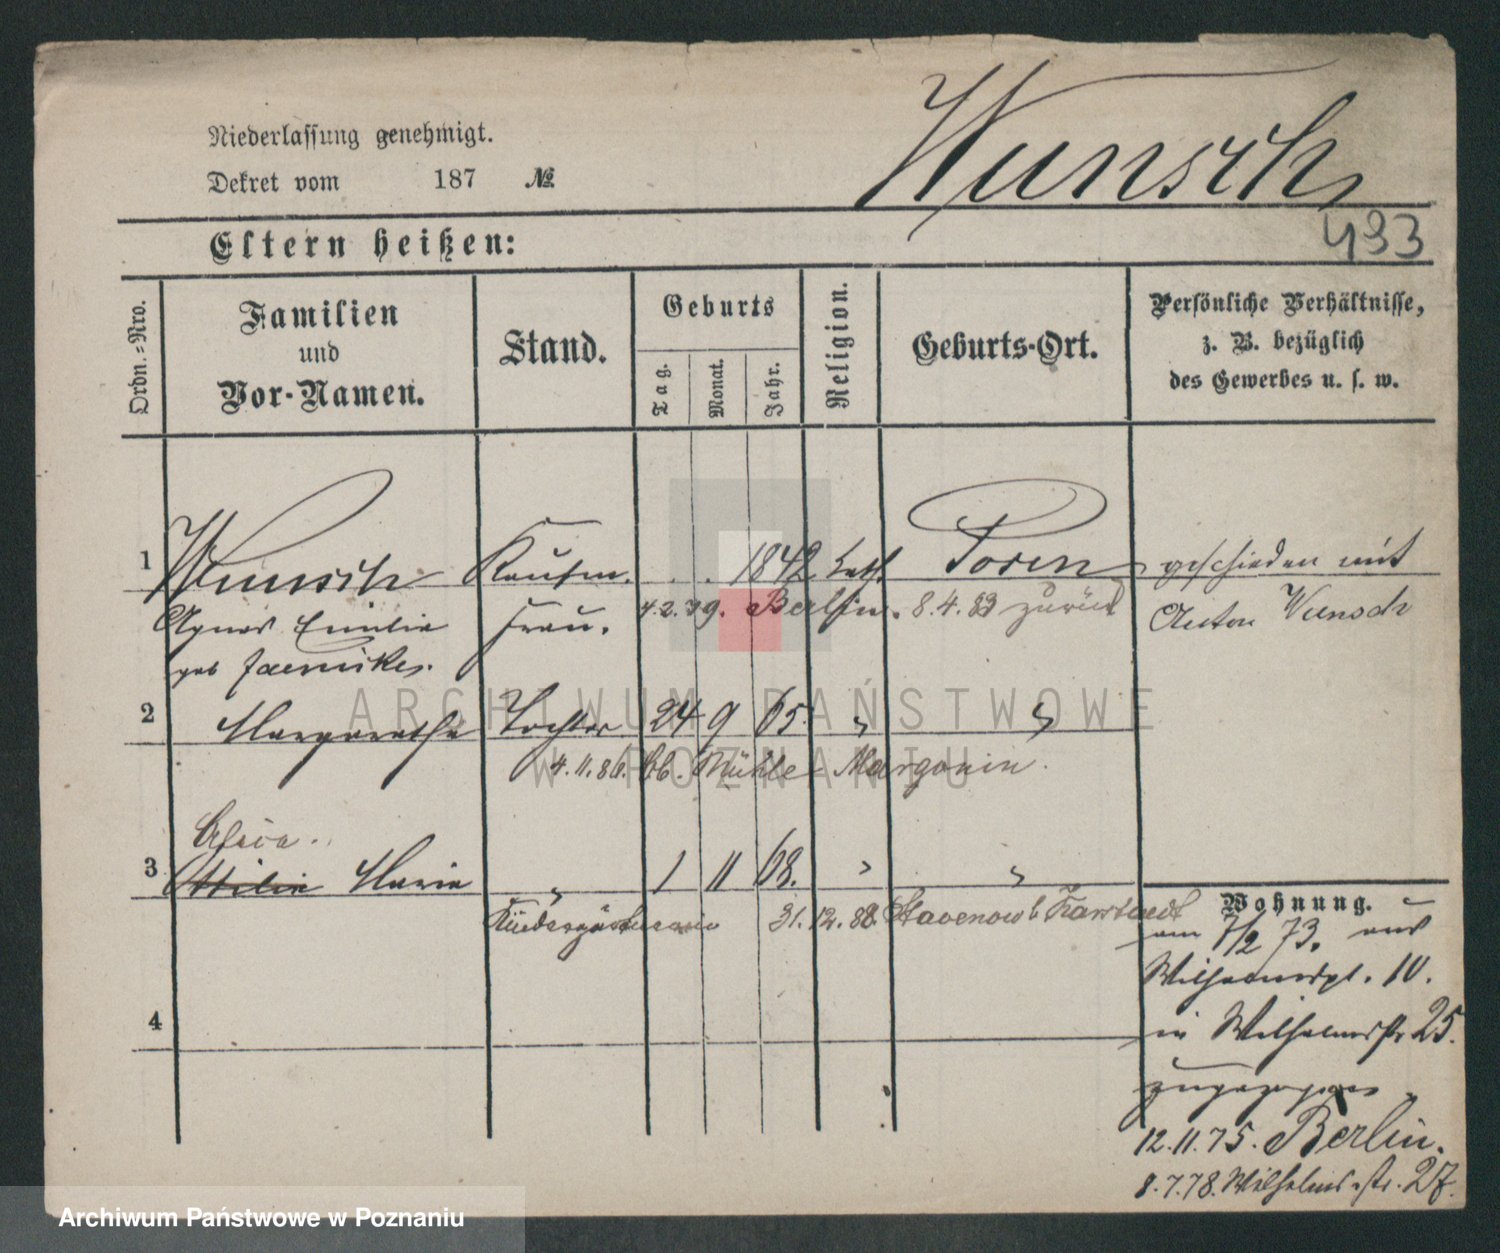 Niederlassung genehmigt.
Dekret vom 187 №
Wunsch
493
Eltern heißen:
Ordn.-Nro.
Familien
und
Vor-Namen.
Stand.
Geburts
Tag.
Monat.
Jahr.
Religion.
Geburts-Ort.
Persönliche Verhältnisse,
z. B. bezüglich
des Gewerbes u. s. w.
1 Wunsch Kaufm. 1842 kath. Posen geschieden mit
Agnes Emilie Frau. Berlin. 8.4.83 zurück Anton Wunsch
geb Jaenickes.
2 Margarethe Tochter 24 9 65. " "
4.11.86. Mühle Margonin.
3 Maria " 1 11 68. " "
Kindergärtnerin 31.12.88. Stavenow b Karstaedt
Wohnung.
am 7/2 73. aus
Wilhelmspl. 10.
in Wilhelmsstr 25.
zugezogen
4
12.11.75. Berlin.
8.7.78. Wilhelmsstr. 27.
ARCHIWUM PAŃSTWOWE
W POZNANIU
Archiwum Państwowe w Poznaniu